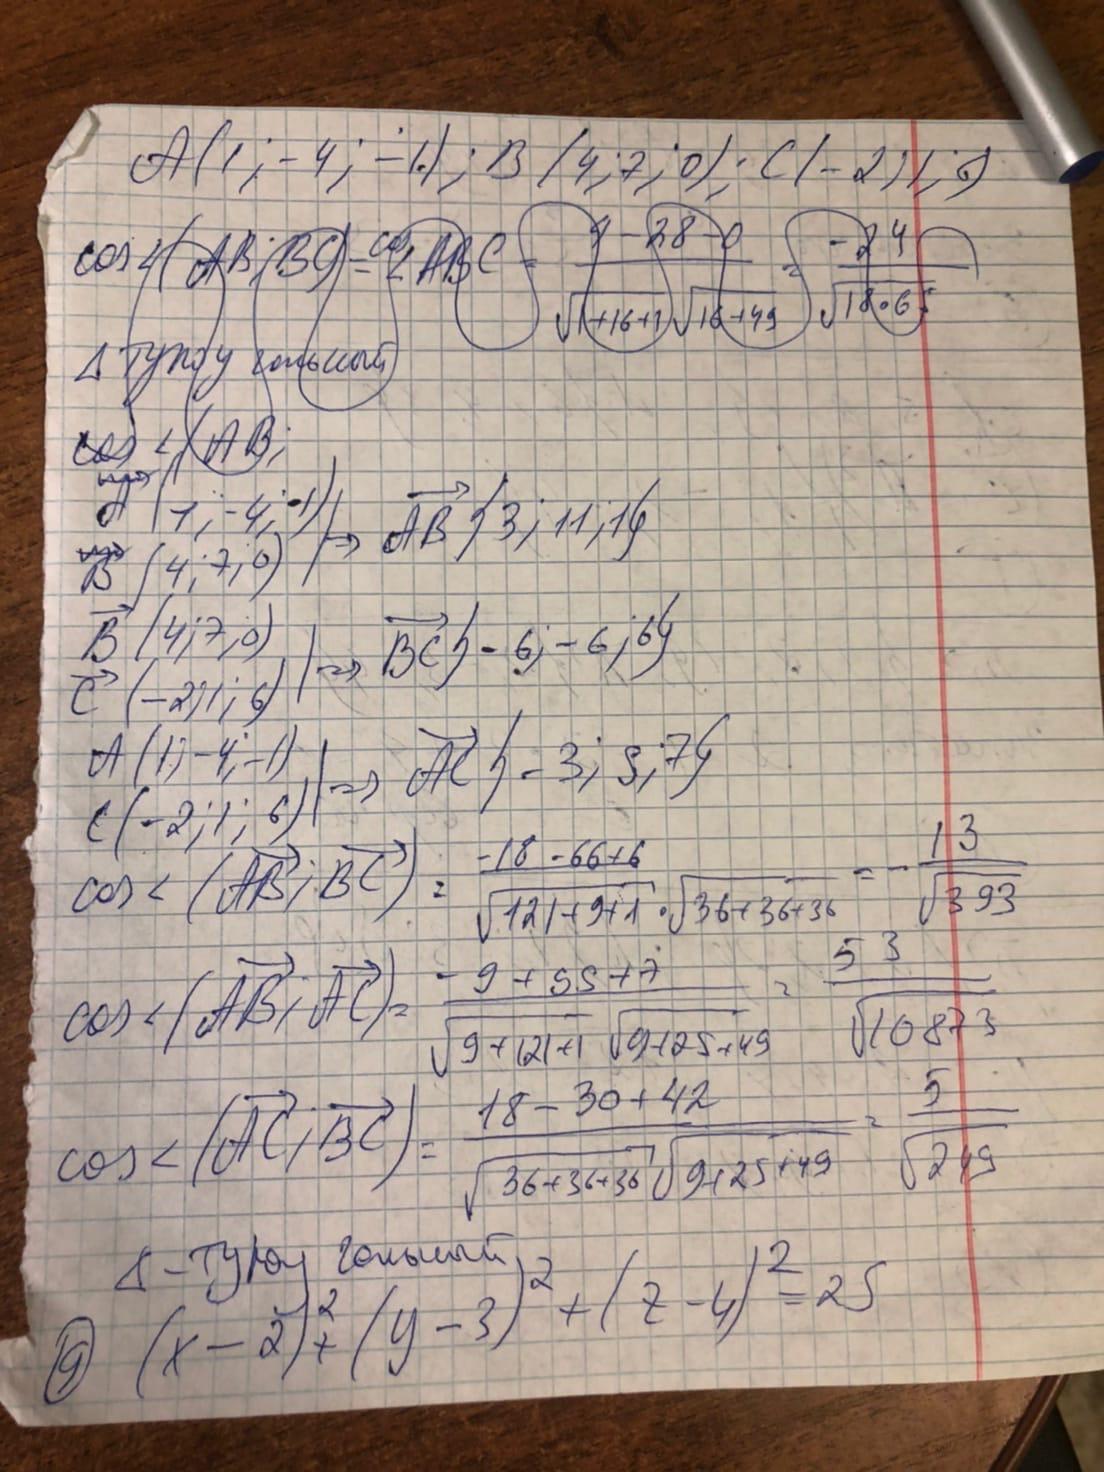 A(1;-4;-1); B(4;7;0); C(-2;1;6)
cos∠(AB;BC)=cos∠ABC = 4-28-0 / √1+16+1 √16+49 = -24 / √18·65
Δ тупоугольный
cos<(AB;
A(1;-4;-1)
B(4;7;0) |=> AB{3;11;1}
B(4;7;0)
C(-2;1;6) |=> BC{-6;-6;6}
A(1;-4;-1)
C(-2;1;6) |=> AC{-3;5;7}
cos<(AB;BC)= -18-66+6 / √121+9+1 · √36+36+36 = - 13 / √393
cos<(AB;AC)= -9+55+7 / √9+121+1 √9+25+49 = 53 / √10873
cos<(AC;BC)= 18-30+42 / √36+36+36 √9+25+49 = 5 / √249
Δ-тупоугольный
⑨ (x-2)²+(y-3)²+(z-4)²=25